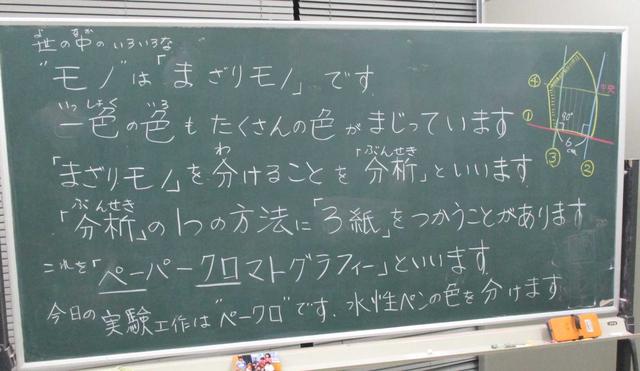 世の中のいろいろな
よ なか
"モノ"は「まざりモノ」です
いっしょく いろ
一色の色もたくさんの色がまじっています
わ ぶんせき
「まざりモノ」を分けることを「分析」といいます
ぶんせき
「分析」の1つの方法に「ろ紙」をつかうことがあります
これを「ペーパークロマトグラフィー」といいます
今日の実験工作は"ペークロ"です. 水性ペンの色を分けます
④
中央
①
90°
③
6cm
②